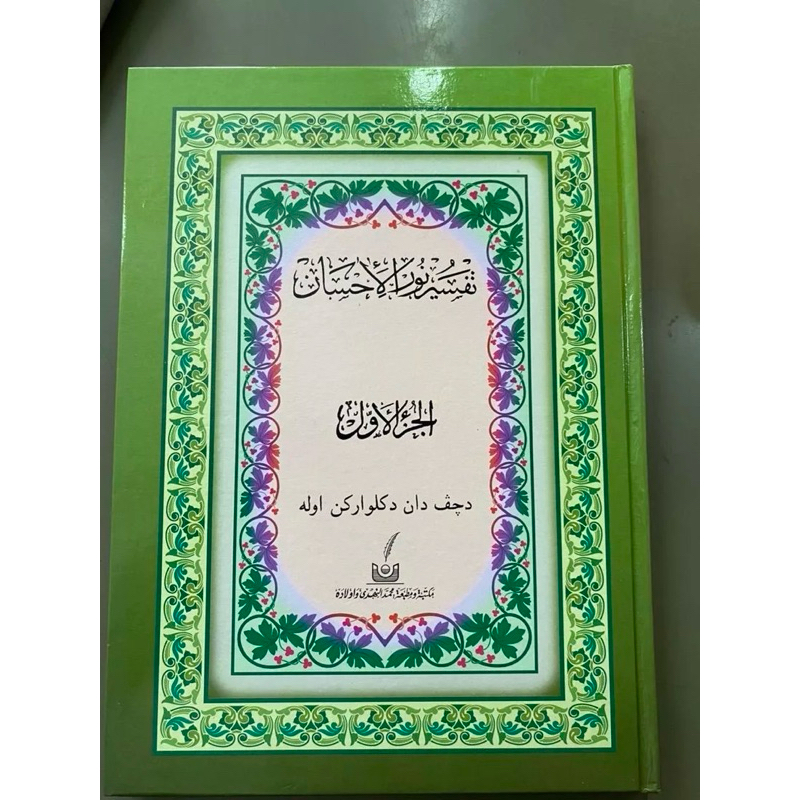 تفسير نور الإحسان
الجزء الأول
دچڤ دان دكلواركن اوله
مكتبة ومطبعة محمد النهدى واولاده